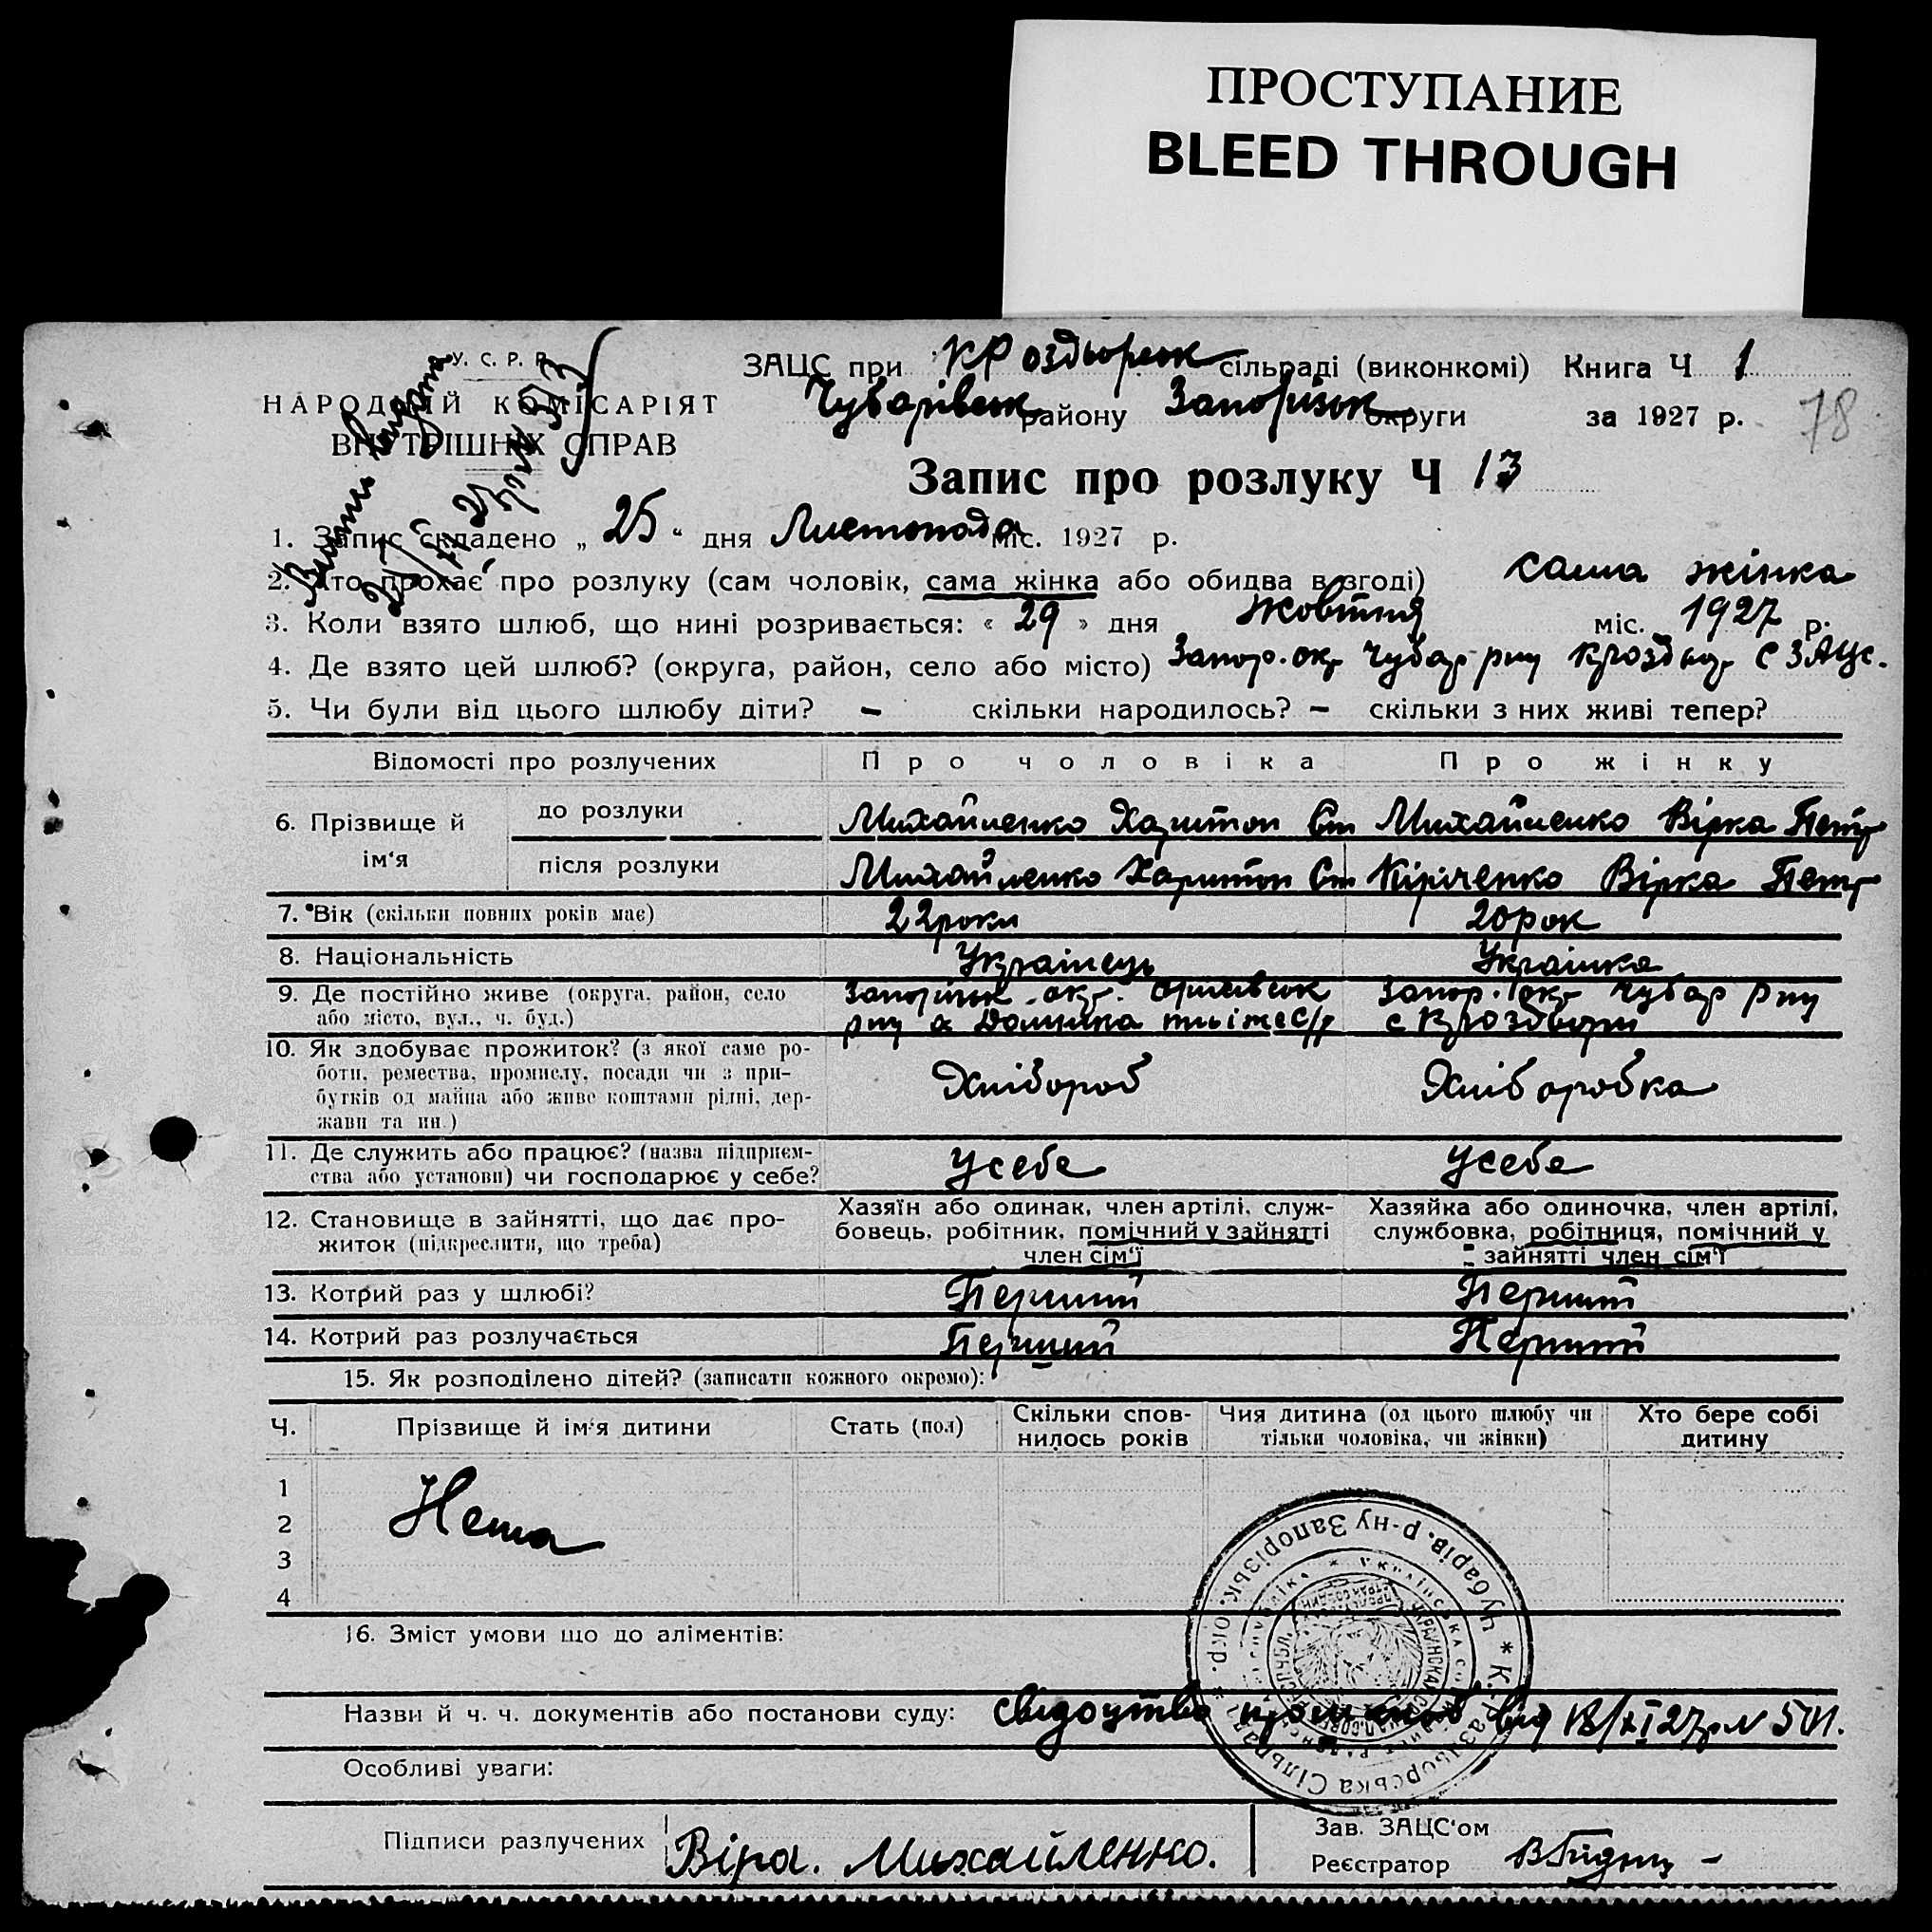 ПРОСТУПАНИЕ
BLEED THROUGH
У. С. Р. Р.
НАРОДНІЙ КОМІСАРІЯТ
ВНУТРІШНІХ СПРАВ
ЗАЦС при сільраді (виконкомі) Книга Ч 1
Чубарівськ району Запорізьк округи за 1927 р.
78
Запис про розлуку Ч 13
1. Запис складено „ 25 “ дня Листопада міс. 1927 р.
2. Хто прохає про розлуку (сам чоловік, сама жінка або обидва в згоді) сама жінка
3. Коли взято шлюб, що нині розривається: « 29 » дня Жовтня міс. 1927 р.
4. Де взято цей шлюб? (округа, район, село або місто) Запор. окр Чубар рну с ЗАЦС.
5. Чи були від цього шлюбу діти? – скільки народилось? – скільки з них живі тепер?
Відомості про розлучених Про чоловіка Про жінку
6. Прізвище й ім‘я
до розлуки Михайленко Харитон Ст Михайленко Вірка Петр
після розлуки Михайленко Харитон Ст Кіріченко Вірка Петр
7. Вік (скільки повних років має) 22 роки 20 рок
8. Національність Українець Українка
9. Де постійно живе (округа, район, село Запорізьк. окр. Запор. окр Чубар рну
або місто, вул., ч. буд.) рну с/р с
10. Як здобуває прожиток? (з якої саме ро-
боти, ремества, промислу, посади чи з при- Хлібороб Хліборобка
бутків од майна або живе коштами рідні, дер-
жави та ин.)
11. Де служить або працює? (назва підприєм- Усебе Усебе
ства або установи) чи господарює у себе?
12. Становище в зайнятті, що дає про-
житок (підкреслити, що треба)
Хазяїн або одинак, член артілі, служ-
бовець, робітник, помічний у зайнятті
член сім‘ї
Хазяйка або одиночка, член артілі,
службовка, робітниця, помічний у
зайнятті член сім‘ї
13. Котрий раз у шлюбі? Перший Перший
14. Котрий раз розлучається Перший Перший
15. Як розподілено дітей? (записати кожного окремо):
Ч. Прізвище й ім‘я дитини Стать (пол) Скільки спов- Чия дитина (од цього шлюбу чи Хто бере собі
нилось років тільки чоловіка, чи жінки) дитину
1
2 Нема
3
4
16. Зміст умови що до аліментів:
Назви й ч. ч. документів або постанови суду: свідоцтво про від 18/XI 27р N 501.
Особливі уваги:
Підписи разлучених Віра. Михайленко.
Зав. ЗАЦС‘ом
Реєстратор
Чубарів. р-ну Запорізьк. окр.